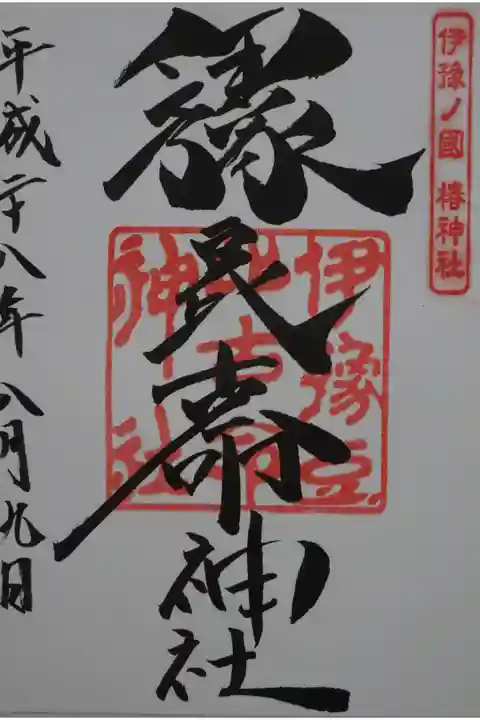 伊豫ノ國 椿神社
民
神社
伊豫豆
比古命
神社
平成二十八年八月九日